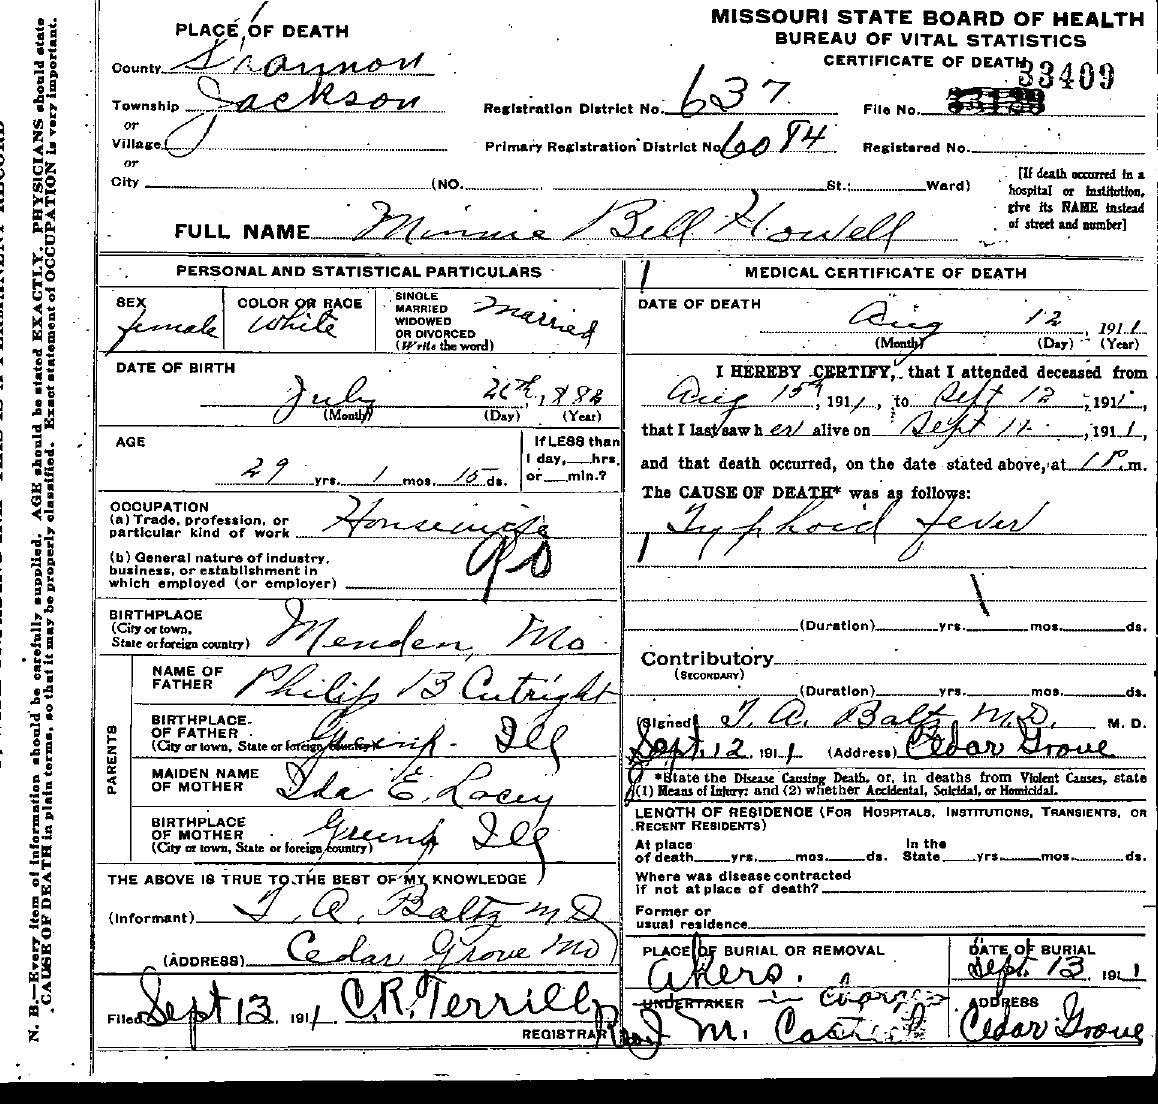 MISSOURI STATE BOARD OF HEALTH
BUREAU OF VITAL STATISTICS
CERTIFICATE OF DEATH
33409
PLACE OF DEATH
County Shannon
Township Jackson
or
Village
or
City (NO. St.; Ward)
Registration District No. 637
Primary Registration District No. 6084
File No.
Registered No.
[If death occurred in a
hospital or institution,
give its NAME instead
of street and number]
FULL NAME Minnie Bell Howell
PERSONAL AND STATISTICAL PARTICULARS
SEX female
COLOR OR RACE White
SINGLE
MARRIED
WIDOWED
OR DIVORCED
(Write the word) Married
DATE OF BIRTH
July 26th, 1882
(Month) (Day) (Year)
AGE
29 yrs. 1 mos. 15 ds.
If LESS than
1 day, hrs.
or min.?
OCCUPATION
(a) Trade, profession, or
particular kind of work Housewife
(b) General nature of industry,
business, or establishment in
which employed (or employer)
BIRTHPLACE
(City or town,
State or foreign country) Menden, Mo
PARENTS
NAME OF
FATHER Philip B Cutright
BIRTHPLACE
OF FATHER
(City or town, State or foreign country) Ill
MAIDEN NAME
OF MOTHER Ida E. Lacey
BIRTHPLACE
OF MOTHER
(City or town, State or foreign country) Ill
THE ABOVE IS TRUE TO THE BEST OF MY KNOWLEDGE
(Informant) T. A. Baltz MD
(ADDRESS) Cedar Grove Mo
Filed Sept 13 1911 C.R. Terrill
REGISTRAR
MEDICAL CERTIFICATE OF DEATH
DATE OF DEATH
Aug 12, 1911
(Month) (Day) (Year)
I HEREBY CERTIFY, that I attended deceased from
Aug 15th, 1911, to Sept 12, 1911,
that I last saw her alive on Sept 11, 1911,
and that death occurred, on the date stated above, at 1 P.m.
The CAUSE OF DEATH* was as follows:
Typhoid fever
(Duration) yrs. mos. ds.
Contributory
(SECONDARY)
(Duration) yrs. mos. ds.
(Signed) T. A. Baltz M.D. M. D.
Sept. 12 1911 (Address) Cedar Grove
*State the Disease Causing Death, or, in deaths from Violent Causes, state
(1) Means of Injury; and (2) whether Accidental, Suicidal, or Homicidal.
LENGTH OF RESIDENCE (FOR HOSPITALS, INSTITUTIONS, TRANSIENTS, OR
RECENT RESIDENTS)
At place
of death yrs. mos. ds. In the
State yrs. mos. ds.
Where was disease contracted
if not at place of death?
Former or
usual residence
PLACE OF BURIAL OR REMOVAL
Akers.
DATE OF BURIAL
Sept. 13 1911
UNDERTAKER in charge
M.
ADDRESS
Cedar Grove
N. B.—Every item of information should be carefully supplied. AGE should be stated EXACTLY. PHYSICIANS should state
CAUSE OF DEATH in plain terms, so that it may be properly classified. Exact statement of OCCUPATION is very important.